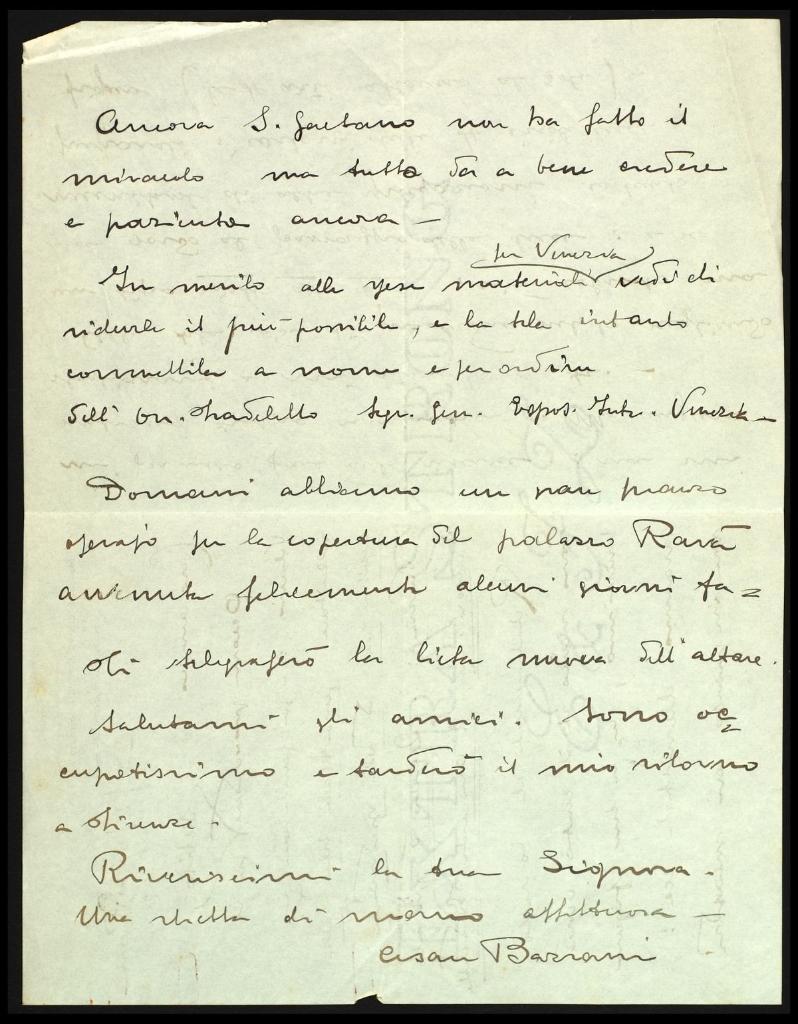 Ancora S. Gaetano non ha fatto il
miracolo ma tutto fa a bene credere
e pazienta ancora —
per Venezia
In merito alle spese materiali vedi di
ridurle il più possibile, e la tela intanto
commettila a nome e per ordine
dell' On. Fradeletto Segr. Gen. Espos. Inte. Venezia —
Domani abbiamo un gran pranzo
operajo per la copertura del palazzo Ravà
avvenuta felicemente alcuni giorni fa =
Ti telegraferò la lieta nuova dell'altare.
Salutami gli amici. Sono oc=
cupatissimo e tarderò il mio ritorno
a Firenze.
Riveriscimi la tua Signora.
Una stretta di mano affettuosa —
Cesare Bazzani